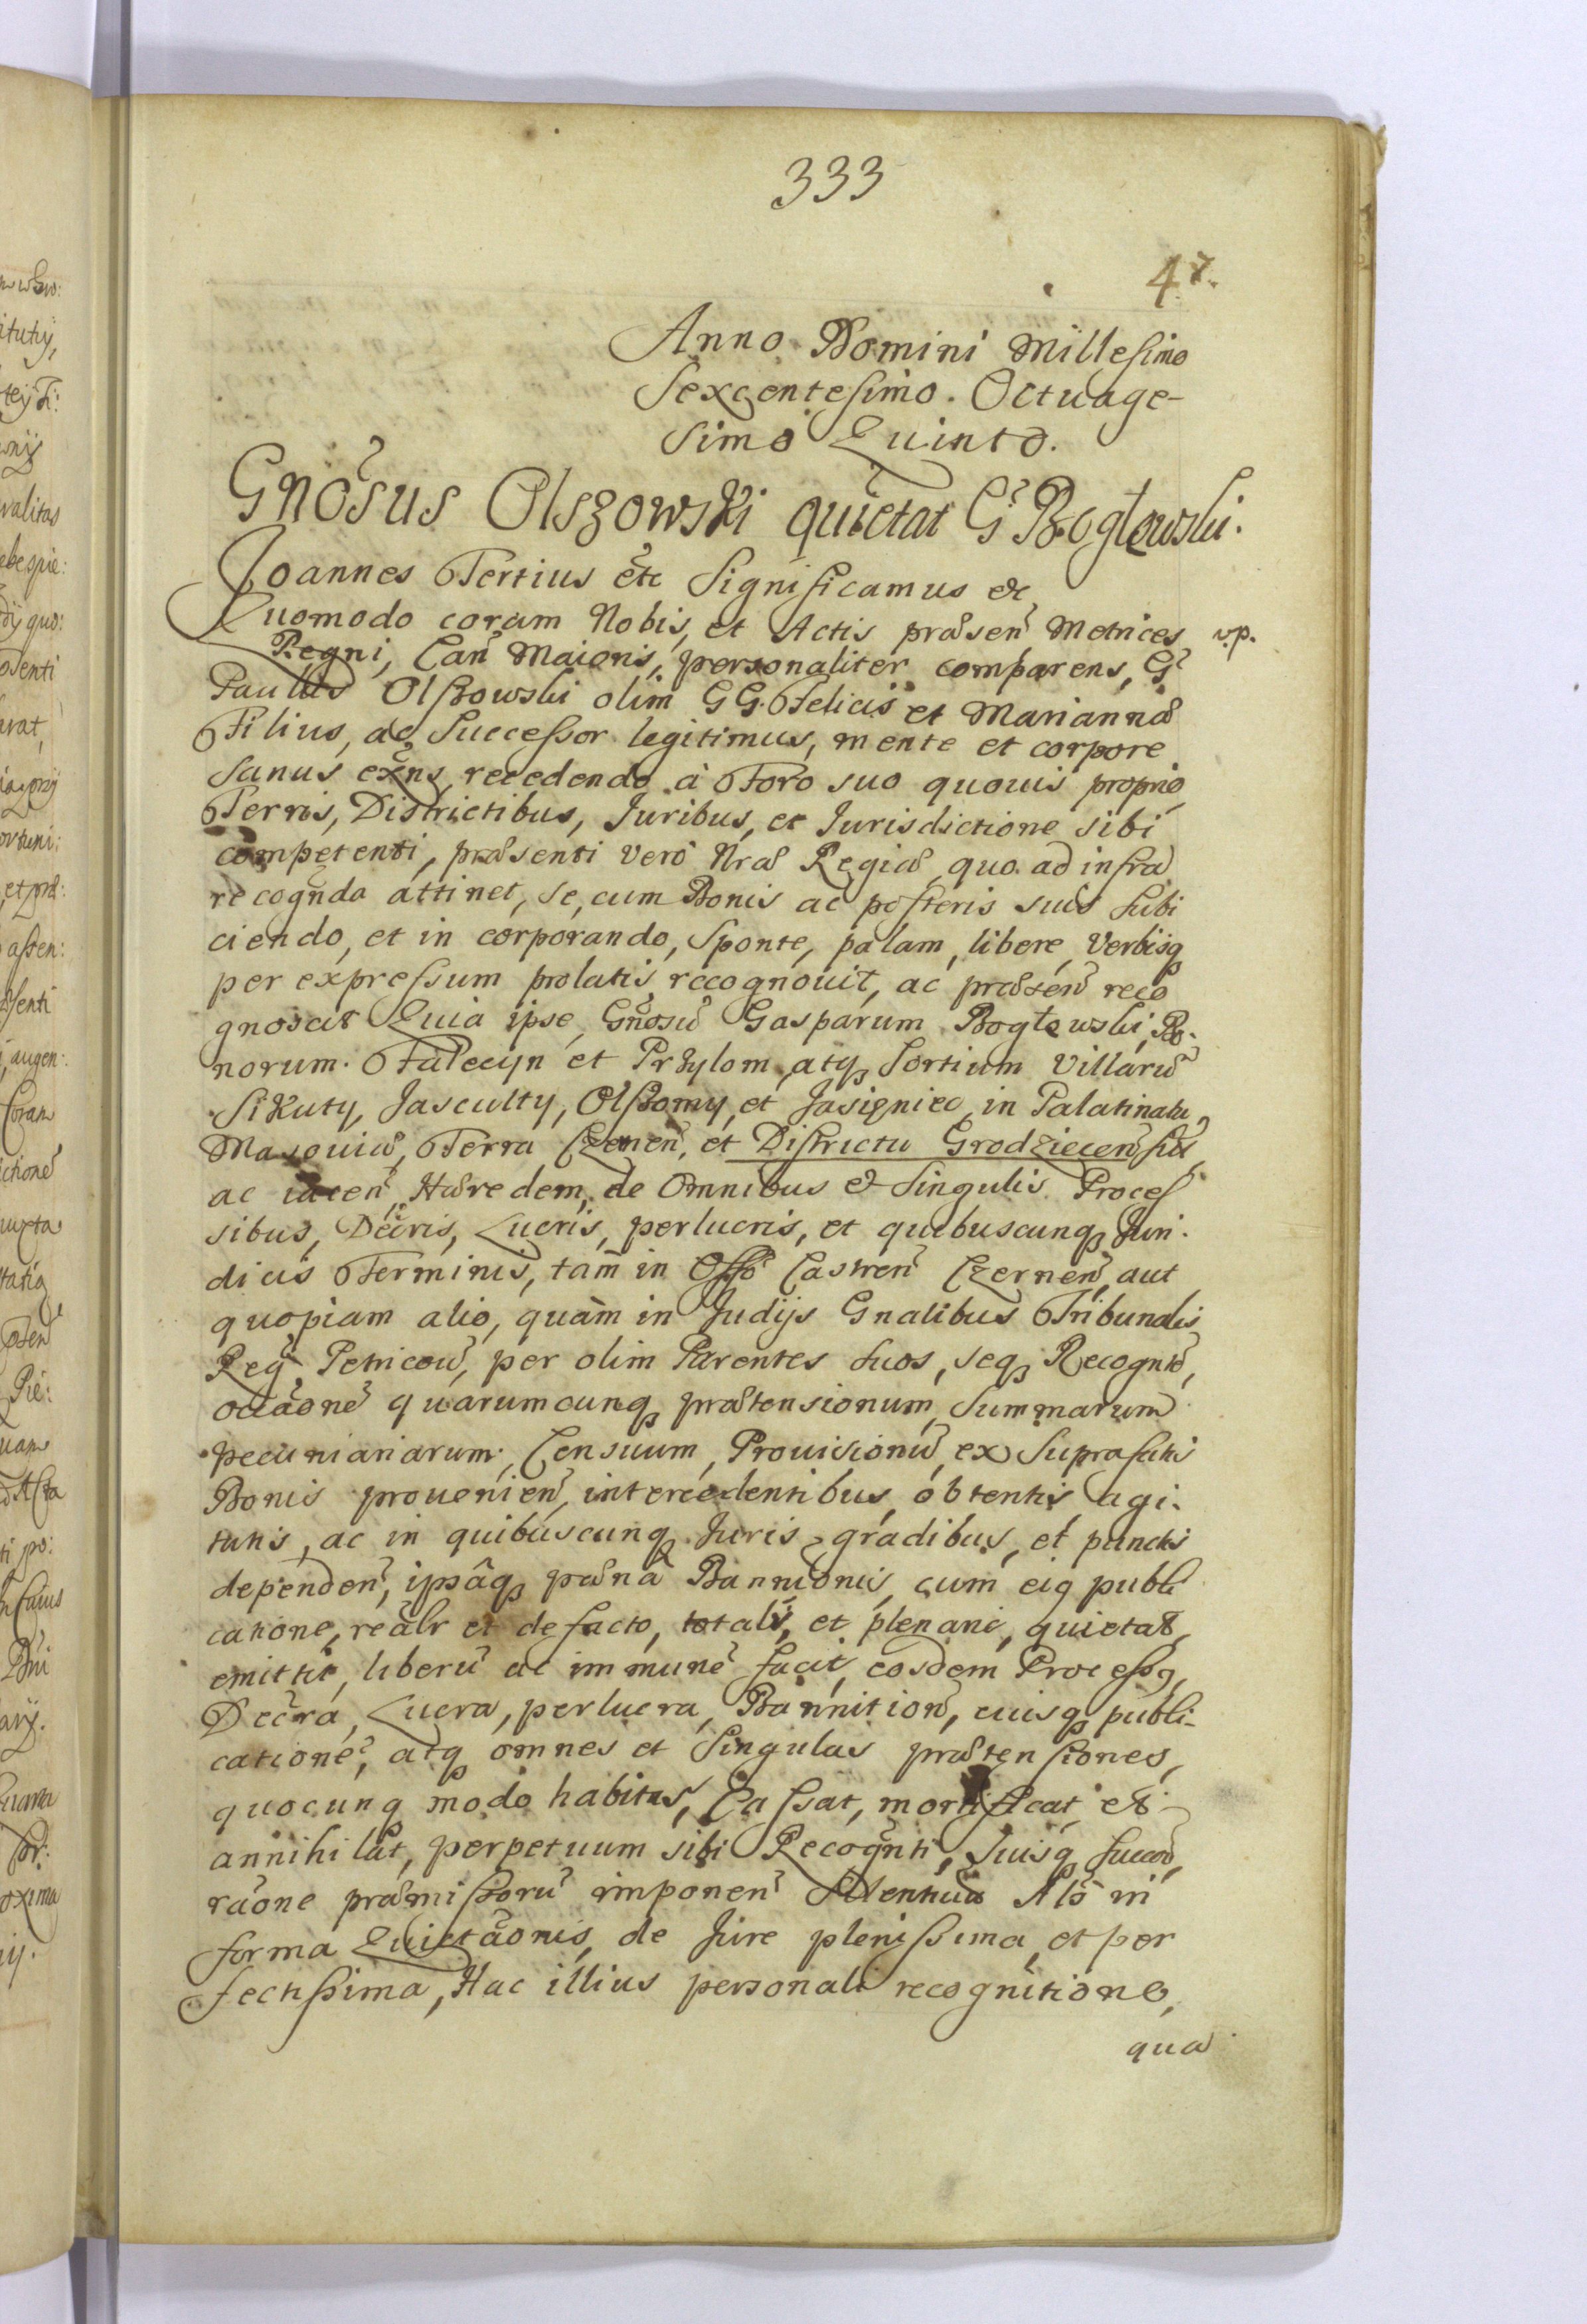 333
47.
Anno Domini Millesimo
Sexcentesimo. Octuage-
simo Quinto.
Gnosus Olszowski quietat G Bogłowski.
Joannes Tertius etc Significamus &c
Quomodo coram Nobis, et Actis præsen Metrices v.p.
Regni, Can Maioris, personaliter comparens, G
Paulus Olszowski olim GG. Felicis et Mariannæ
Filius, ac Successor legitimus, mente et corpore
sanus exns, recedendo à Foro suo quovis proprio
Terris, Districtibus, Juribus, et Jurisdictione sibi
competenti, præsenti verò Nræ Regiæ, quo. ad infra
recognda attinet, se, cum Bonis ac posteris suis subi
ciendo, et in corporando, Sponte, palam, libere, Verbisq
per expressum prolatis, recognouit, ac præsen reco
gnoscit Quia ipse, Gnosu Gasparum Bogłowski, Bo-
norum. Falecyn et Przylom, atq Sortium Villaru
Sikuty, Jasculty, Olszomy, et Jasigniec, in Palatinatu
Masouiæ, Terra Czernen, et Districtu Grodziecen
ac iacen, Hæredem, de Omnibus & Singulis Proces
sibus, Decris, Lucris, perlucris, et quibuscunq Juri.
dicis Terminis, tam in Offo Castren Czernen, aut
quopiam alio, quàm in Judijs Gnalibus Tribunalis
Regn Petricou, per olim Parentes suos, seq Recognte,
occaone quarumcunq prætensionum, Summarum
pecuniariarum, Censuum, Prouisionu, ex Suprafatis
Bonis prouenien, intercedentibus, obtentis, agi-
tatis, ac in quibuscunq Juris gradibus, et punctis
dependen, ipsâq pæna Bannionis, cum eiq publi
catione, realr et de facto, totalr, et plenarie, quietat,
emittit, liberu ac immune facit, eosdem Processq,
Decra, Lucra, perlucra, Bannition, cuisq publi-
catione, atq omnes et Singulas prætensiones,
quocunq modo habitas, Cassat, mortificat et
annihilat, perpetuum sibi Recognti, Suisq Succou,
raone præmissoru imponen Silentium Alo in
forma Quietaonis, de Jure plenissima, et per
fectissima, Hac illius personali recognitione,
qua